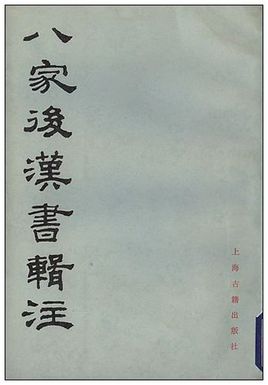 八家後漢書輯注
上海古籍出版社